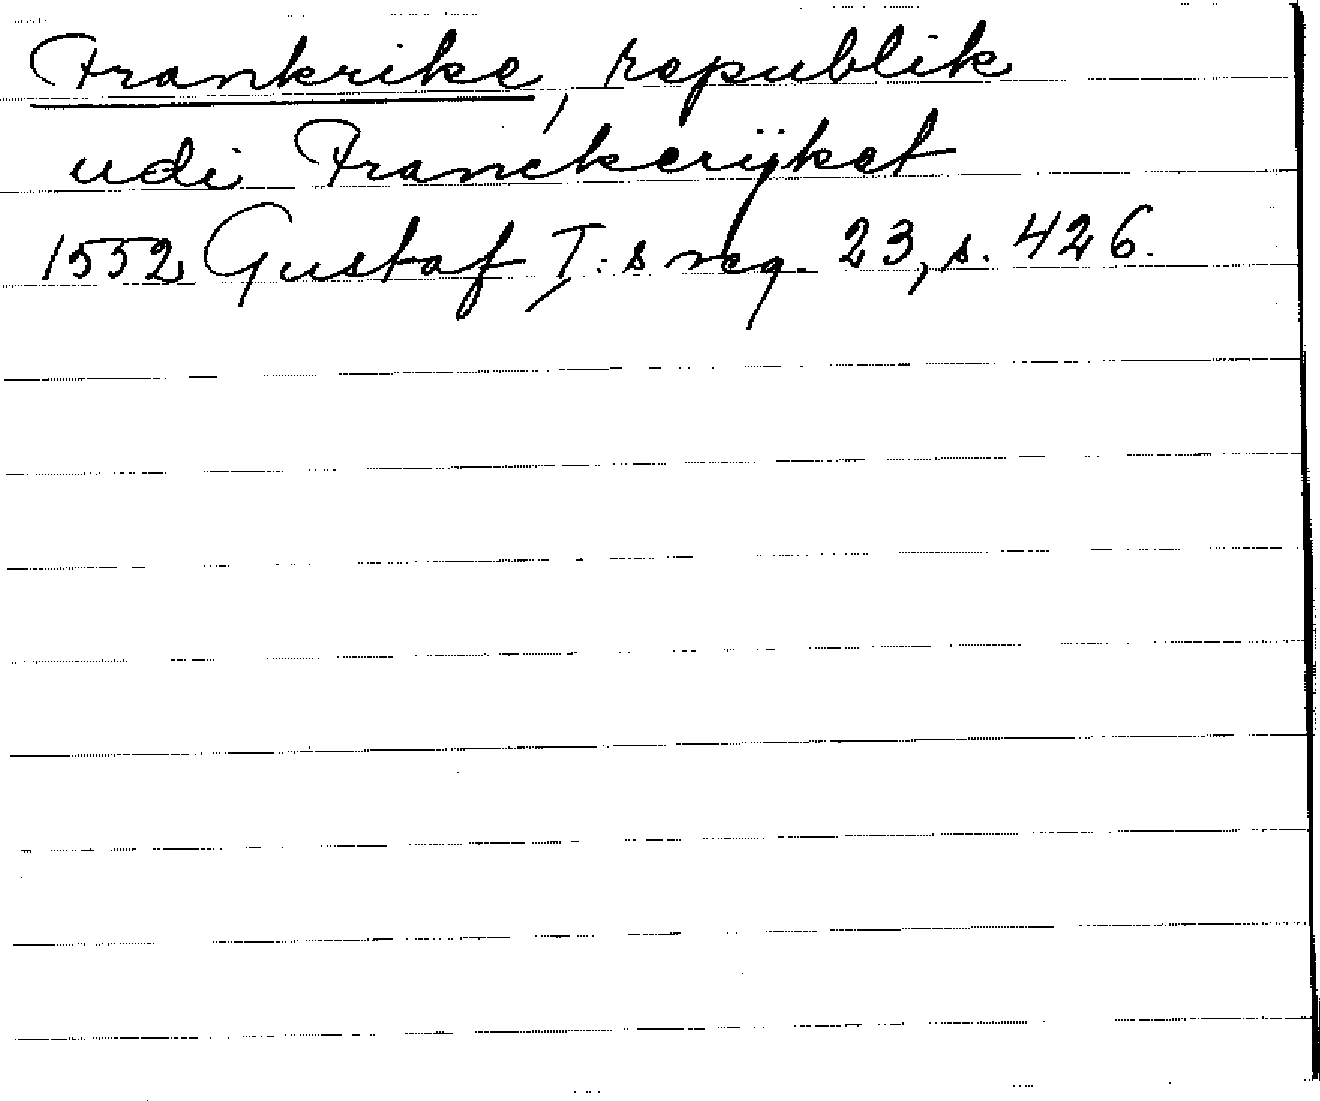 Frankrike, republik
udi Franckerÿket
1552 Gustaf I:s reg. 23, s. 426.